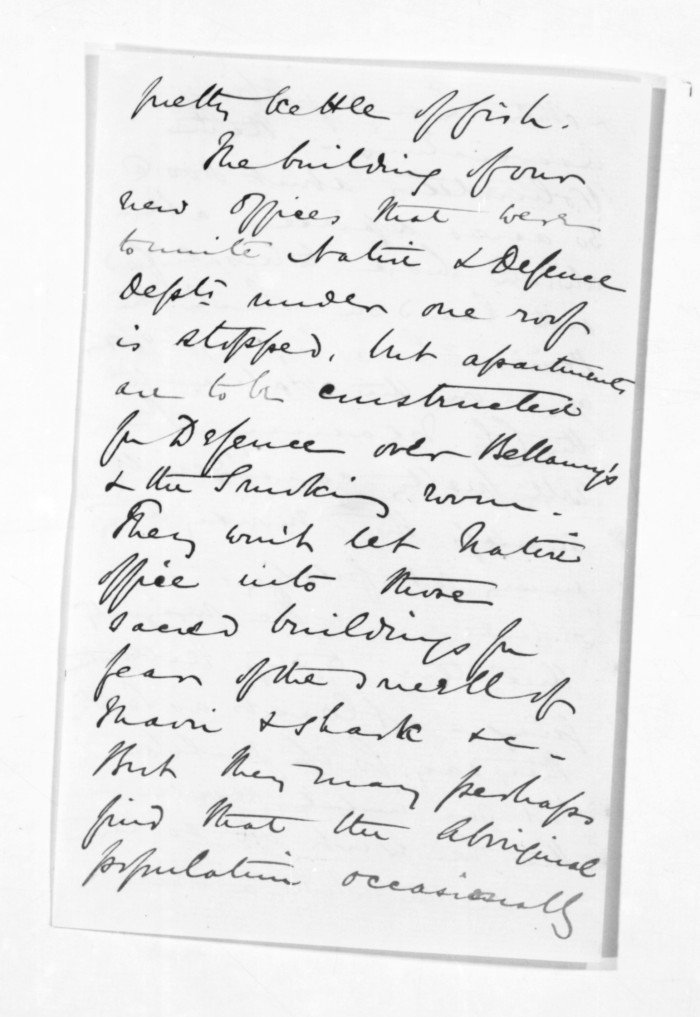 pretty kettle of fish.
The building of our
new offices that were
to unite Native & Defence
Depts under one roof
is stopped, but apartments
are to be constructed
for Defence over Bellamy's
& the Smoking room.
They won't let Native
office into those
sacred buildings for
fear of the smell of
Maori & shark &c -
But they may perhaps
find that the Aboriginal
population occasionally